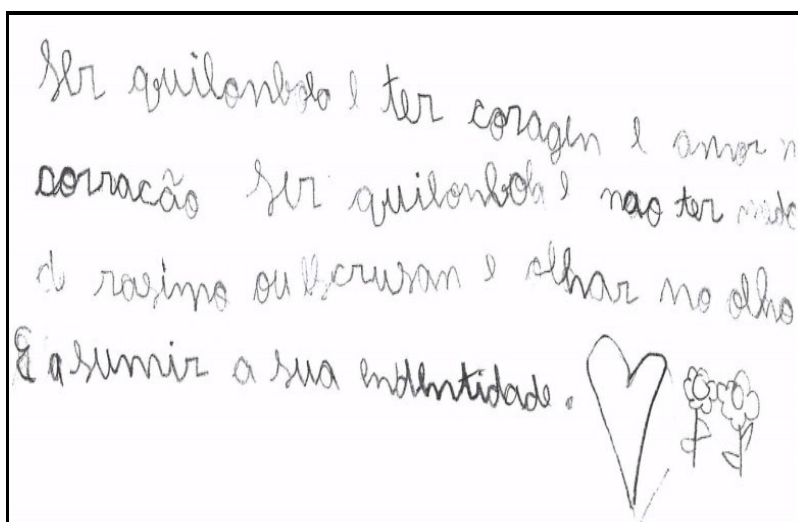 Ser quilonbola e ter coragen e amor n
corracão Ser quilonbola e nao ter medo
d rasimo ou Escrusan e olhar no olho
E asumir a sua endentidade.